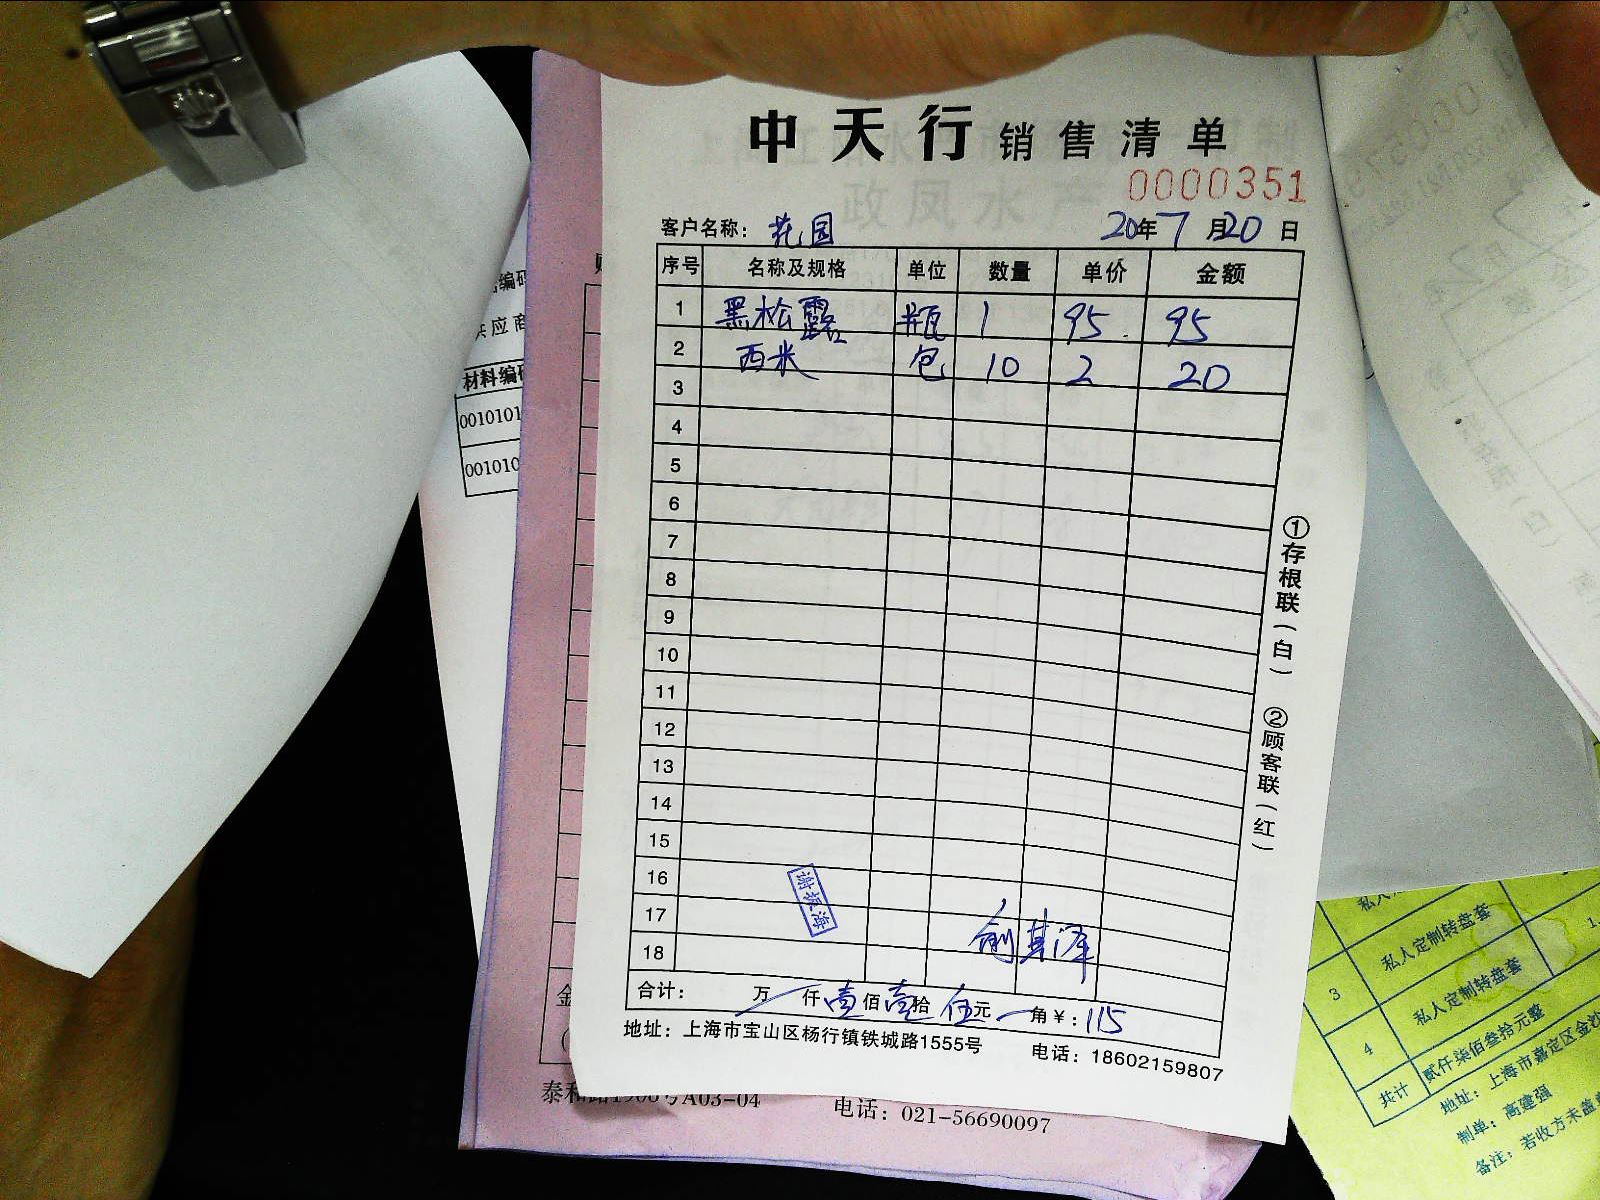 中天行 销售清单
0000351
客户名称: 花园 20年7月20日
序号 名称及规格 单位 数量 单价 金额
1 黑松露 瓶 1 95 95
2 西米 包 10 2 20
3
4
5
6
7
8
9
10
11
12
13
14
15
16
17
18
谢振海
合计: 万 仟壹佰壹拾伍元 角¥: 115
地址: 上海市宝山区杨行镇铁城路1555号 电话: 18602159807
①存根联(白) ②顾客联(红)
A03-04 电话: 021-56690097
供应商
材料编码
0010101
001010
3 私人定制转盘套
4 私人定制转盘套
共计 贰仟柒佰叁拾元整
地址: 上海市嘉定区金沙
制单: 高建强
备注: 若收方未盖